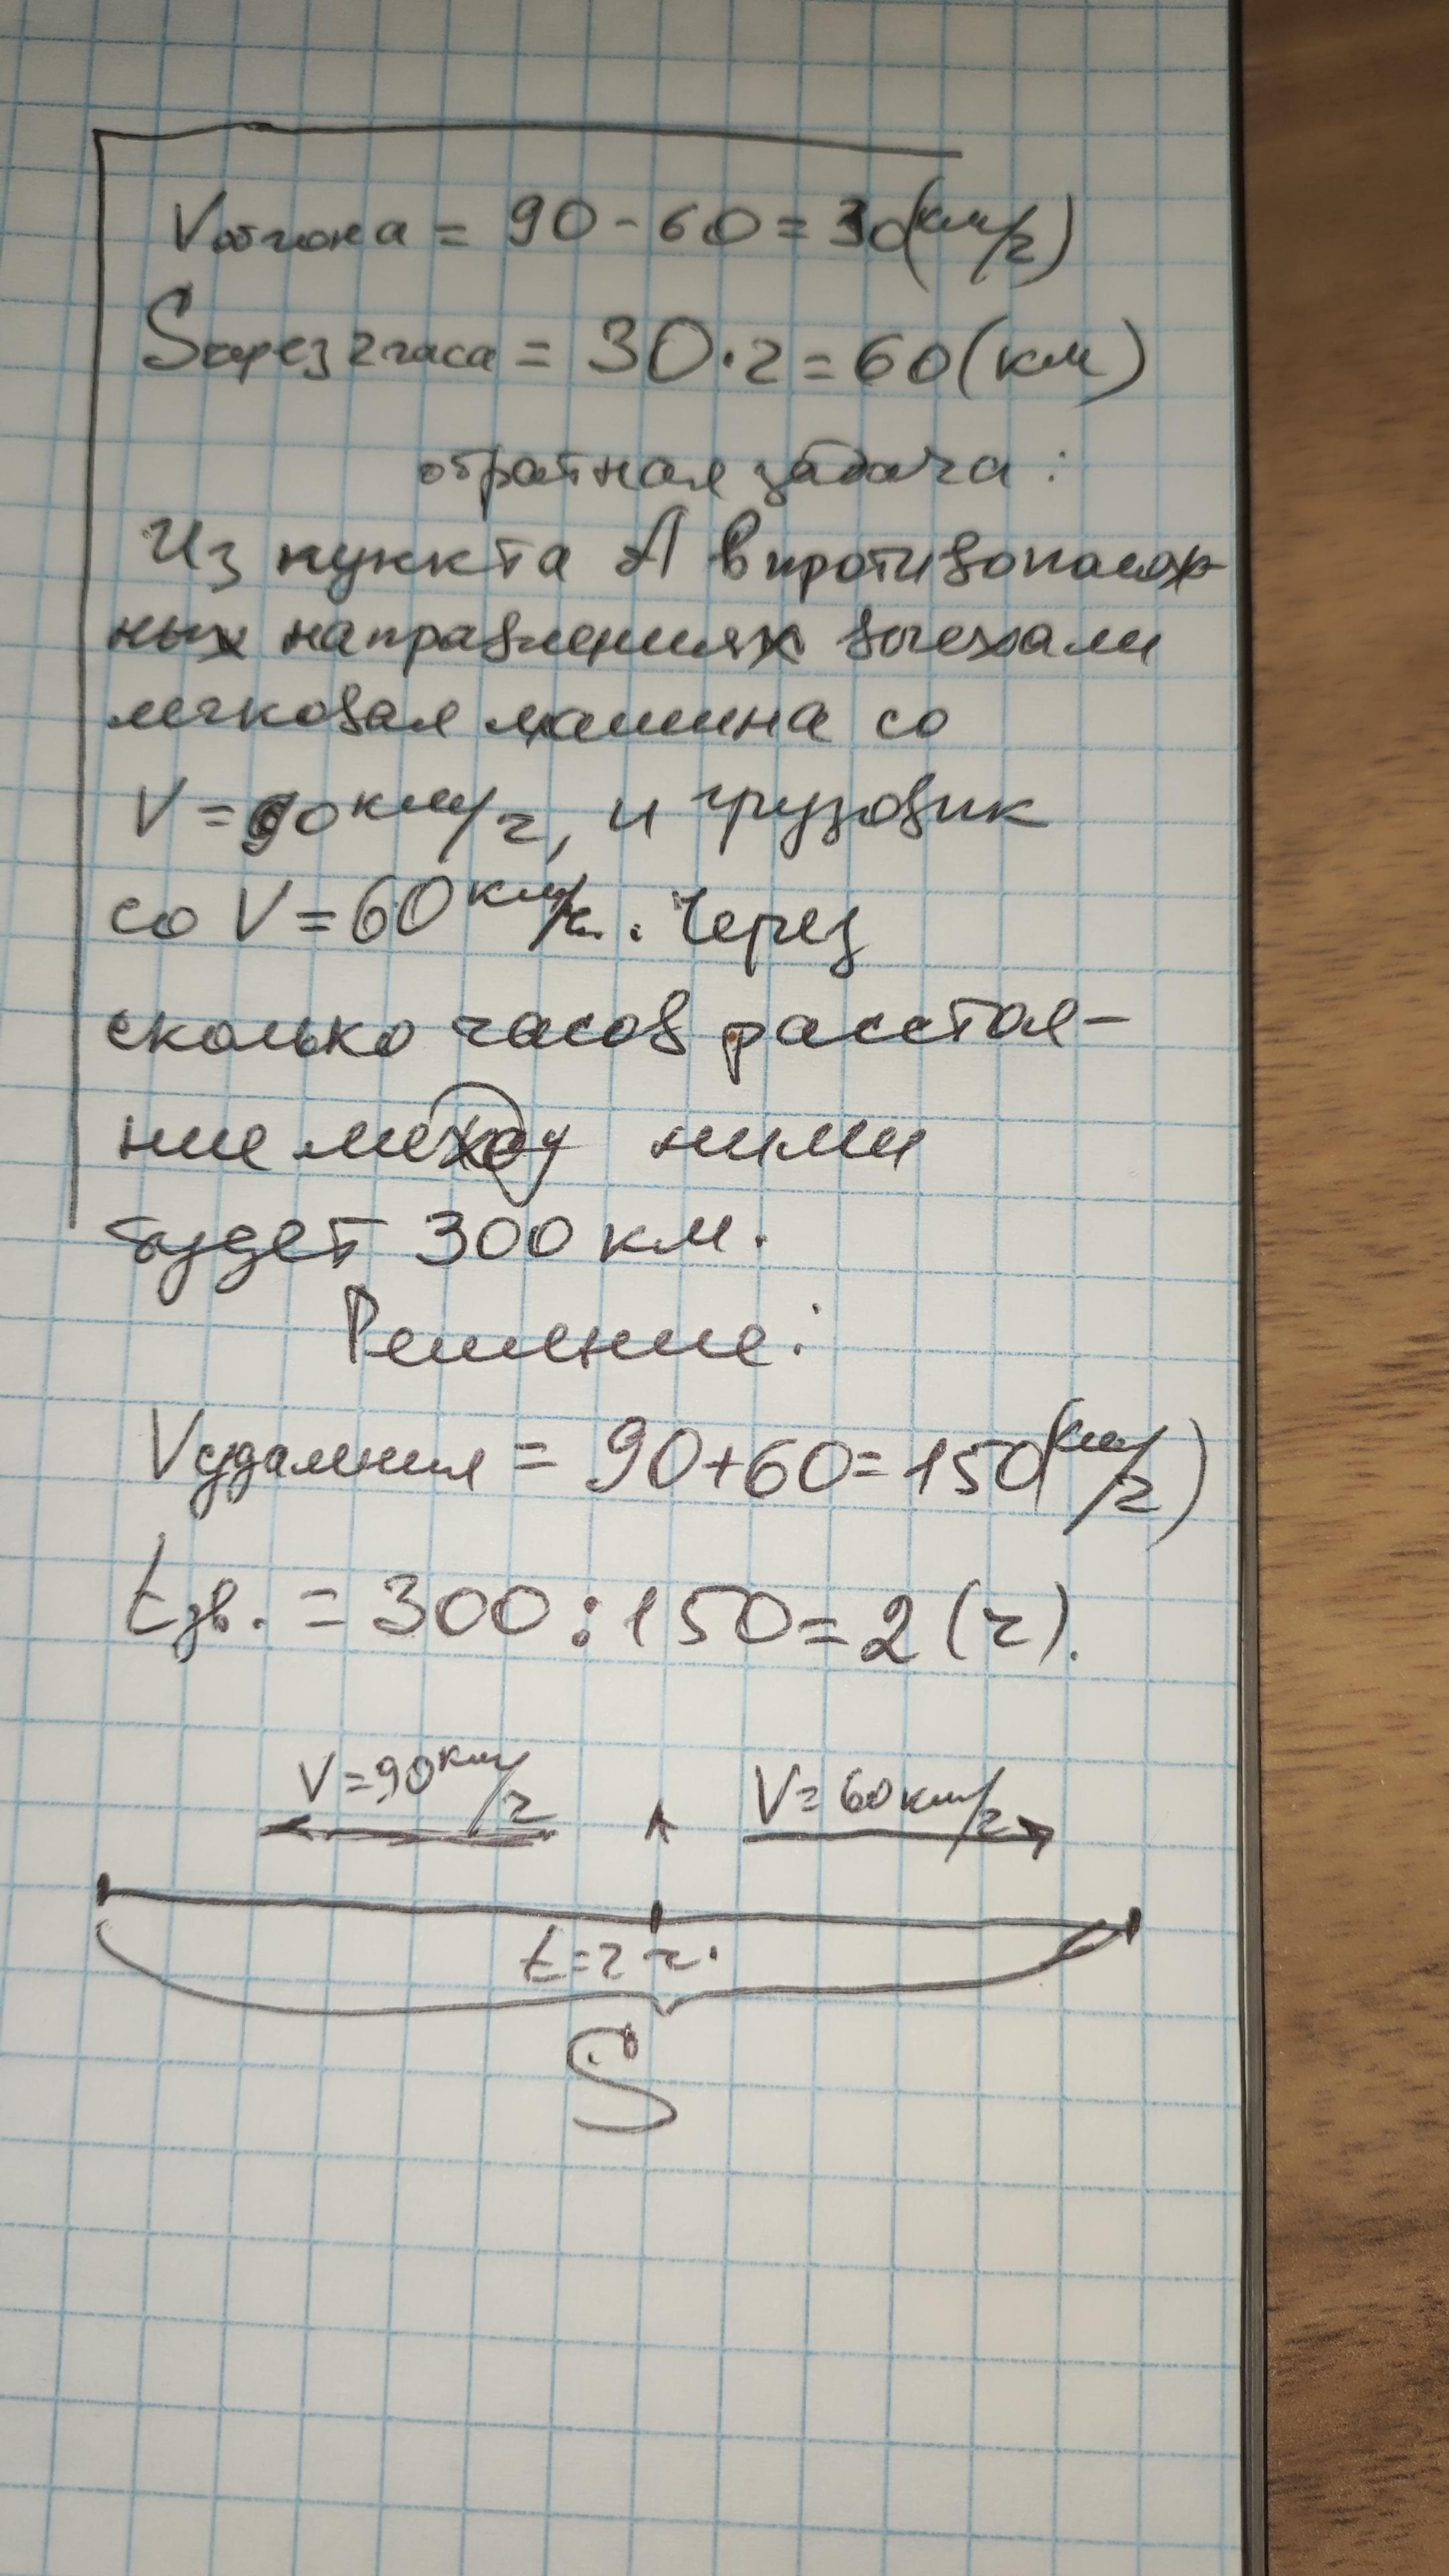 Vобгона = 90 - 60 = 30 (км/ч)
Sчерез 2 часа = 30 · 2 = 60 (км)
обратная задача :
Из пункта А в противополож-
ных направлениях выехали
легковая машина со
V = 90 км/ч, и грузовик
со V = 60 км/ч. Через
сколько часов расстоя-
ние между ними
будет 300 км.
Решение:
Vудаления = 90 + 60 = 150 (км/ч)
tдв. = 300 : 150 = 2 (ч).
V = 90 км/ч V = 60 км/ч
t = 2 ч.
S